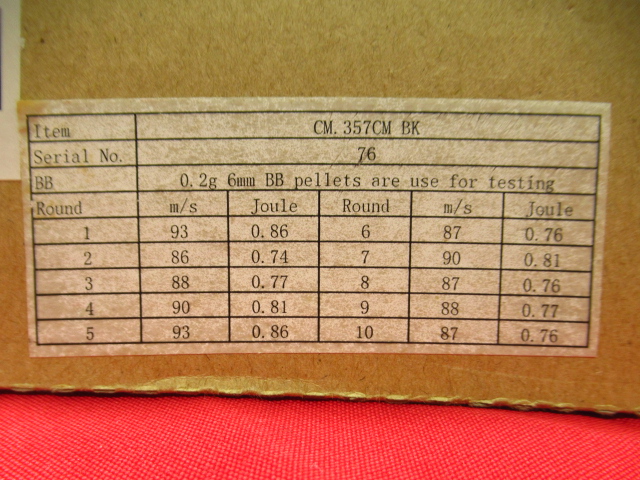 Item CM.357CM BK
Serial No. 76
BB 0.2g 6mm BB pellets are use for testing
Round m/s Joule Round m/s Joule
1 93 0.86 6 87 0.76
2 86 0.74 7 90 0.81
3 88 0.77 8 87 0.76
4 90 0.81 9 88 0.77
5 93 0.86 10 87 0.76